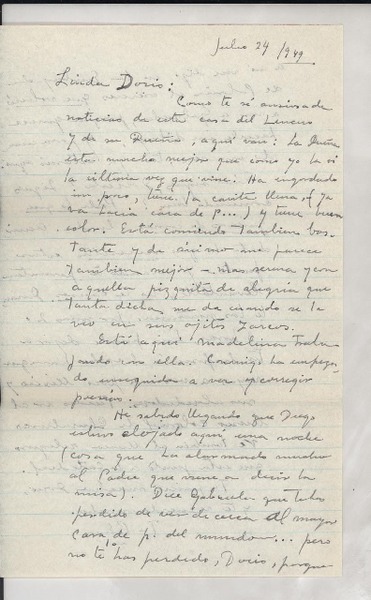 Julio 24/949
Linda Doris:
Como te sé ansiosa de
noticias de esta casa del Lencero
y de su Dueña, aquí van: La Dueña
está mucho mejor que como yo la vi
la última vez que vine. Ha engordado
un poco, tiene la carita llena, (ya
no hacía cara de p...) y tiene buen
color. Está comiendo tambien bas-
tante y de ánimo me parece
tambien mejor - mas serena y con
aquella pizquita de alegría que
tanta dicha me da cuando se la
veo en sus ojitos zarcos.
Está aquí Madelina traba-
jando con ella. Conmigo ha empeza-
do enseguida a ver y corregir
poesías.
He sabido llegando que Diego
estuvo alojado aquí una noche
(cosa que ha alarmado mucho
al Padre que viene a decir la
misa). Dice Gabriela que te has
perdido de ver de cerca al mayor
cara de p. del mundo... pero
no te lo has perdido, Doris, porque